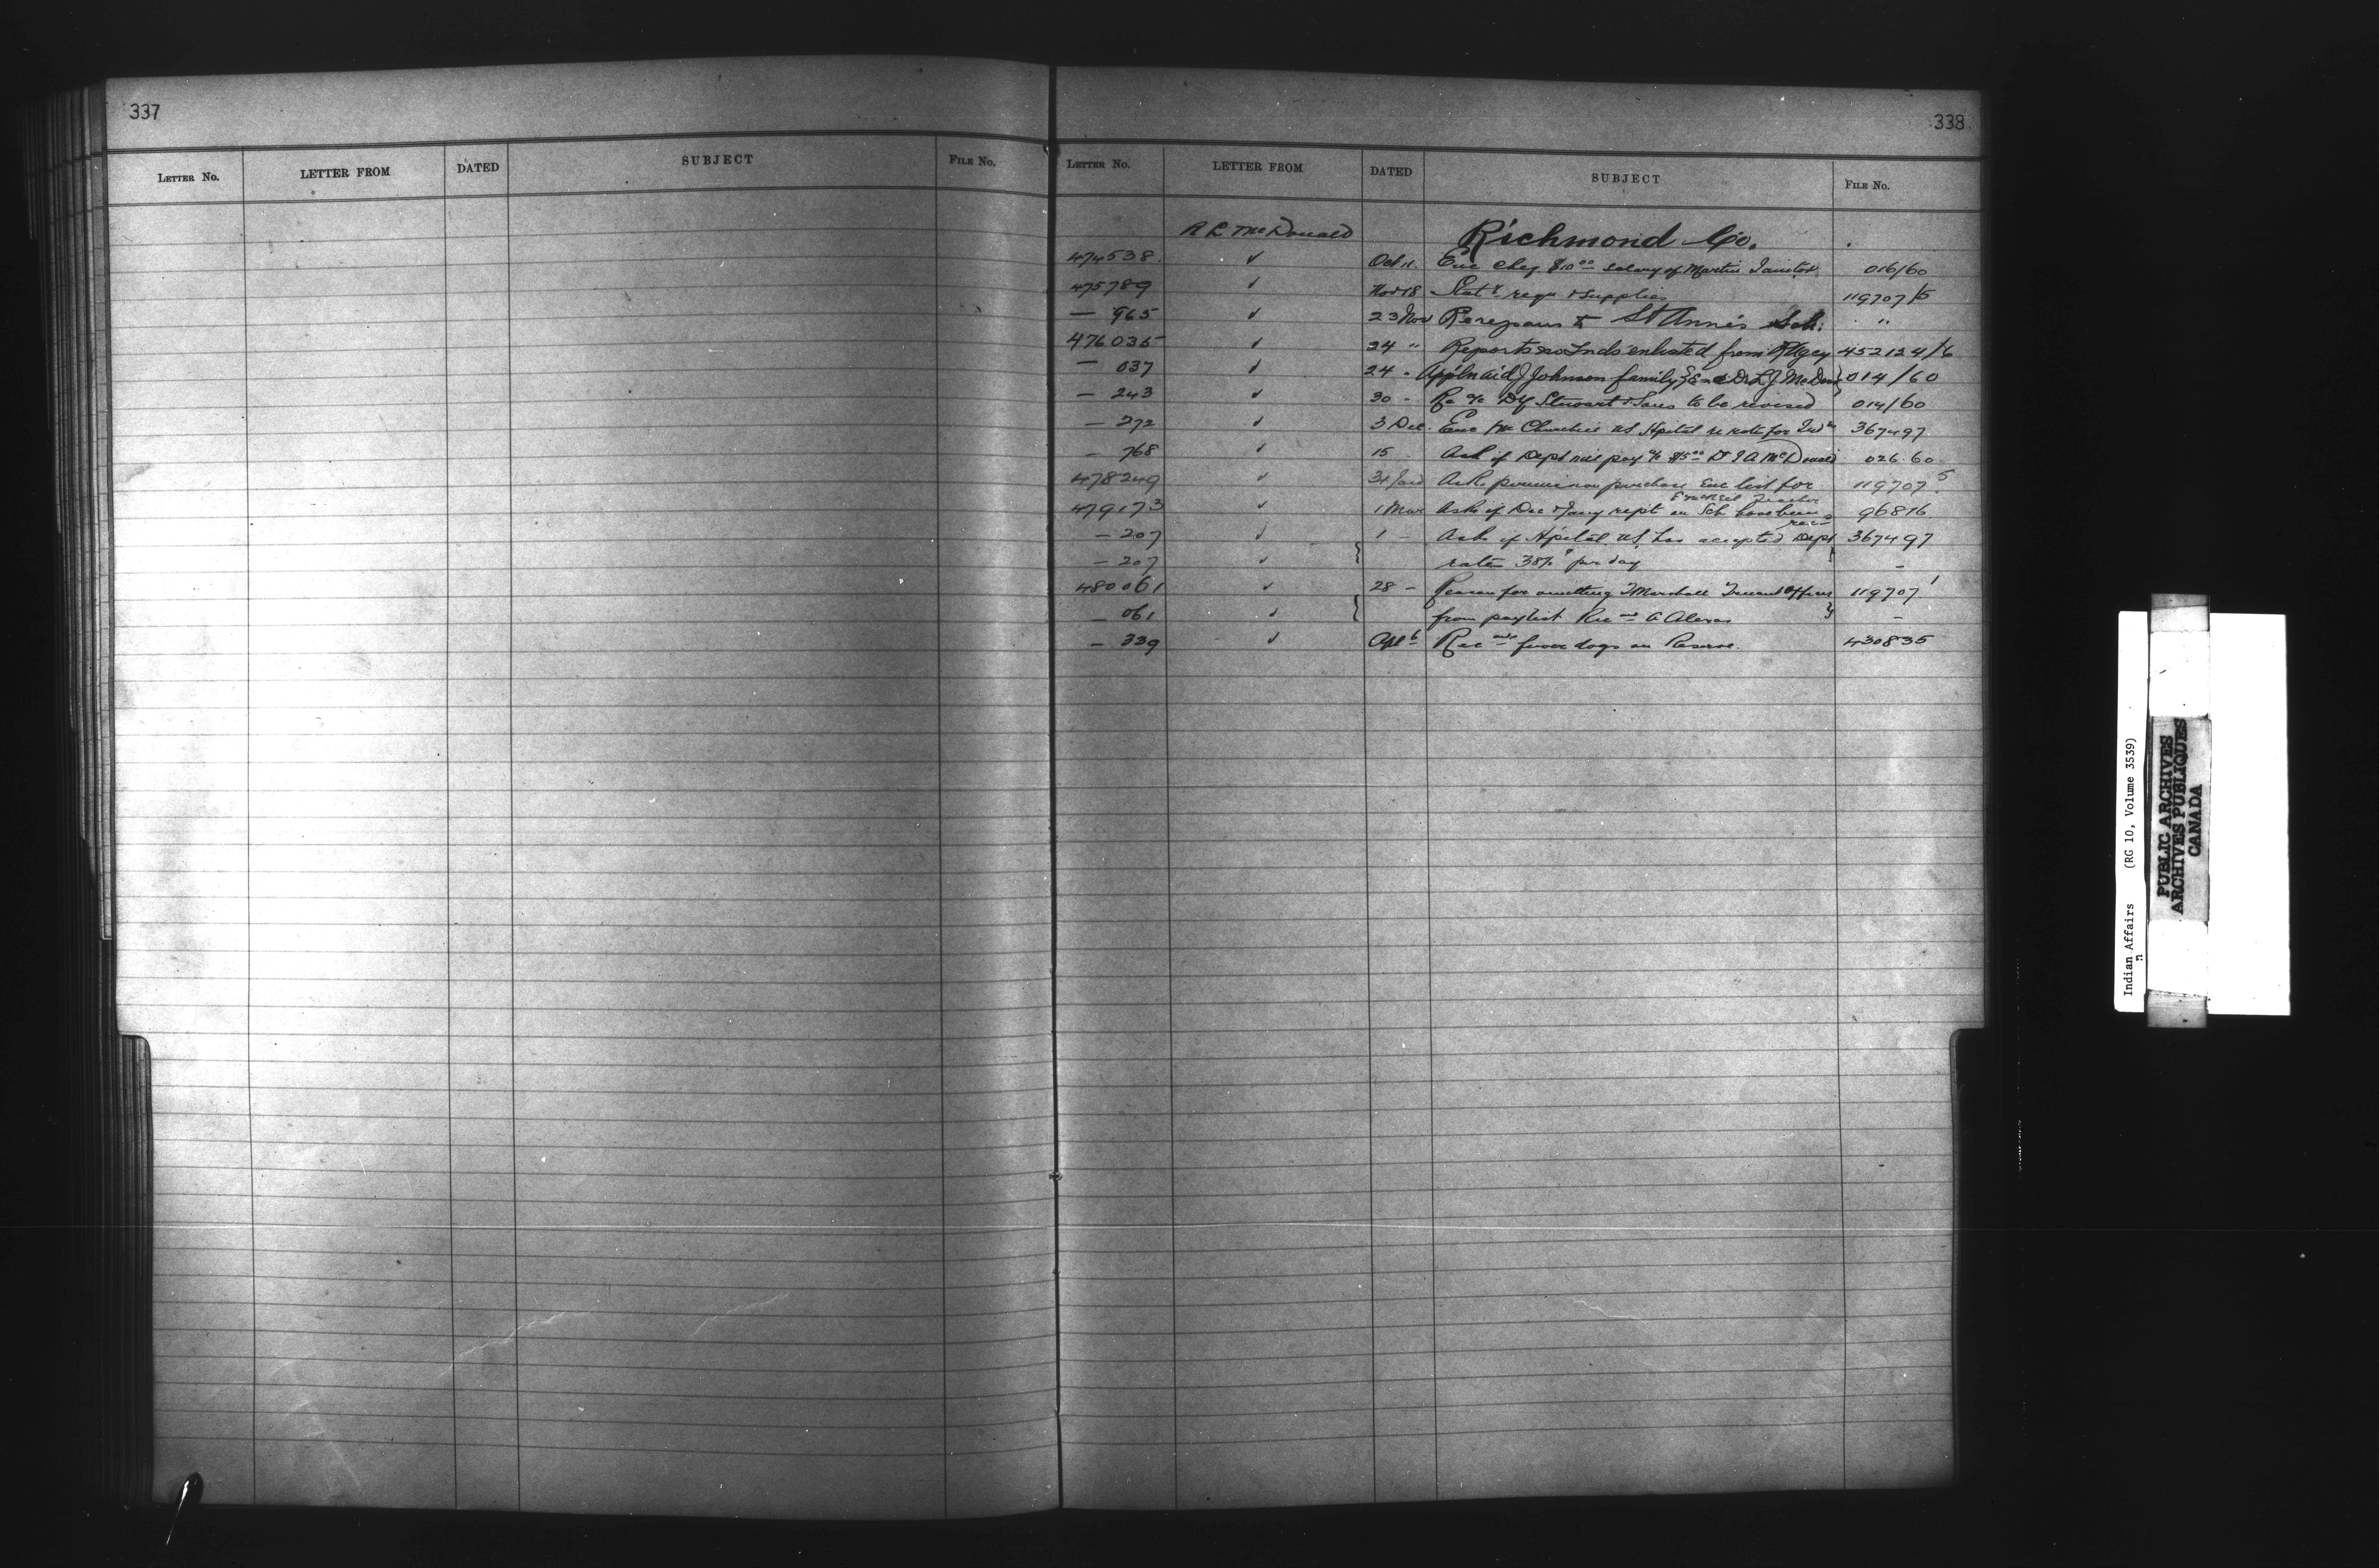 337
LETTER NO. LETTER FROM DATED SUBJECT FILE NO.
338
LETTER NO. LETTER FROM DATED SUBJECT FILE NO.
A L McDonald Richmond Co.
474538. ✓ Oct 11. Enc cheq $10.00 salary of Martin Janitor 016/60
475789 ✓ Nov 18 Stat'y requ & supplies 119707/5
— 965 ✓ 23 Nov Re repairs to St Anne's Sch: "
476035 ✓ 24 " Reports no Inds enlisted from Agcy 452124/6
— 037 ✓ 24 - Appln aid J Johnson family, & Enc Dr L J McDon 014/60
— 243 ✓ 30 - Re a/c Stewart & Sons to be revised 014/60
— 272 ✓ 3 Dec. Enc fm US Hpital re rate for Inds 367497
— 768 ✓ 15 - Ask if Dept will pay a/c $5.00 Dr J A McDonald 026.60
478249 ✓ 31 Jan Ask permission purchase Enc list for 119707 5
479173 ✓ 1 Mar Ask if Dec & Jany repts on Sch have been rec 96816
— 207 ✓ 1 - Ask if Hpital US has accepted Dept 367497
— 207 ✓ rate 38% per day —
480061 ✓ 28 - Reason for omitting T Marshall Truant Officer 119707 1
— 061 ✓ from paylist Rec A Alexis —
— 339 ✓ Apl 6 Rec fewer dogs on Reserve. 430835
Indian Affairs (RG 10, Volume 3539)
PUBLIC ARCHIVES
ARCHIVES PUBLIQUES
CANADA